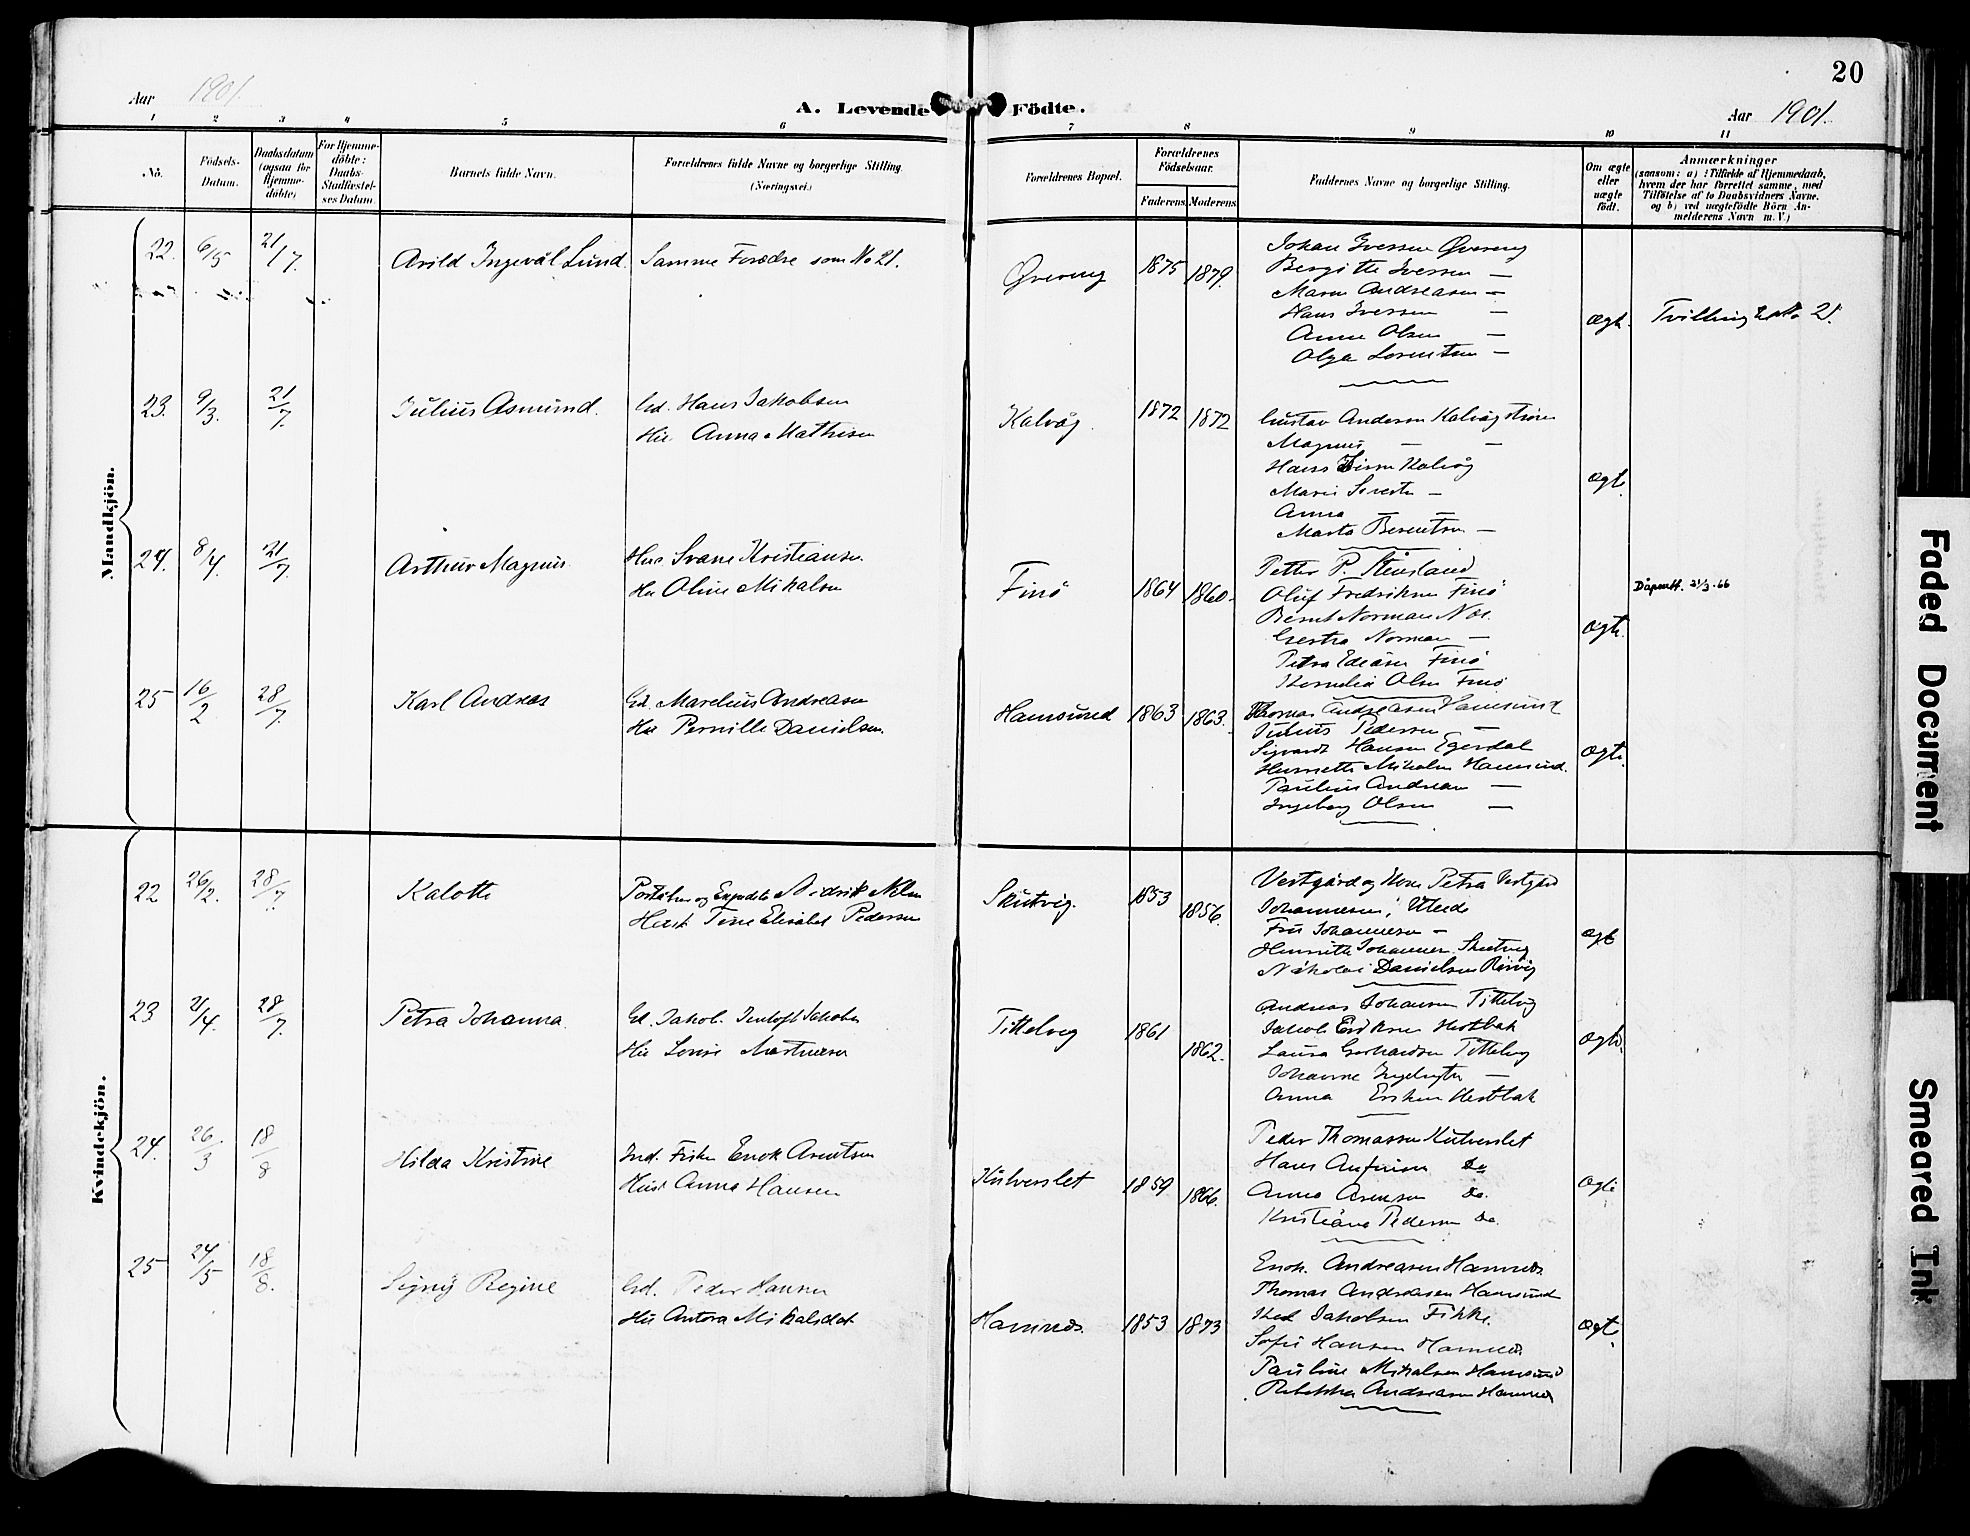 20
Aar 1901.
A. Levende Födte.
Aar 1901.
1 2 3 4 5 6 7 8 9 10 11
No.
Födsels-
Datum.
Daabsdatum
(ogsaa for
Hjemme-
döbte)
For Hjemme-
döbte:
Daabs-
Stadfæstel-
ses Datum.
Barnets fulde Navn.
Forældrenes fulde Navne og borgerlige Stilling
(Næringsvei.)
Forældrenes Bopæl.
Forældrenes
Födselsaar.
Faderens Moderens
Faddernes Navne og borgerlige Stilling.
Om ægte
eller
uægte
født.
Anmærkninger
(saasom: a) i Tilfælde af Hjemmedaab,
hvem der har forrettet samme, med
Tilföielse af to Daabsvidners Navne,
og b) ved uægtefödte Börn An-
melderens Navn m. V.)
Mandkjön.
22. 6/5 21/7. Arild Ingevál Lund. Samme Forædre som No 21.
Øvereng 1875 1879.
Johan Iversen Øvereng
Bergitte Iversen —
Maren Andreasen —
Hans Iversen —
Anne Olsen —
Olga Lorentsen —
Ægt. Tvilling No 21.
23. 9/3. 21/7. Julius Asmund. Gd. Hans Jakobsen
Hu. Anna Mathisen
Kalvåg. 1872 1872
Gustav Andersen Kalvåg
Magnus — —
Hans Kalvåg
Marie —
Anna — —
Marta Berentsen —
Ægte.
24. 8/4. 21/7. Arthur Magnus. Svane Kristiansen
Hu Oline Mikalsen
Finö 1864 1860.
Petter P. Stensland
Oluf Fredriksen Finö
Bernt Norman
Norman —
Petra Finö
Kornelia Olsen Finö
Ægte. Dåpsatt. 31/3-66
25 16/2 28/7. Karl Andreas Gd. Marelius Andreasen
Hu Pernille Danielsen.
Hamsund 1863 1863.
Thomas Andreasen Hamsund
Julius Pedersen —
Sigvardt Hansen Egerdal
Henriette Mikalsen Hamsund.
Pauline Andreasen —
Ingeborg Olsen —
Ægte.
Kvindekjön.
22 26/2. 28/7. Kalotte Didrik Nilsen
Hust Tine Elisabet Pedersen
Skutvig. 1853 1856.
Vestgård og Petra Vestgård
Johannesen, Uteide
Fru Johannesen —
Henriette Johannesen Skutvig
Nikolai Danielsen
Ægte
23 2/4. 28/7. Petra Johanna. Gd. Jakob Jentoft Jakobsen
Hu Lovise
Tittelvig 1861 1862.
Andreas Johansen Tittelvig
Jakob Eriksen Hestbak
Laura Gerhardsen Tittelvig
Johanne —
Anna Eriksen Hestbak
Ægte.
24. 26/3 18/8 Hilda Kristine Ind. Fisker Enok Arentsen
Hust Anna Hansen
Kulverslet 1859 1866.
Peder Thomassen Kulverslet
Hans Do
Anna Do.
Kristiane Pedersen Do.
Ægte
25 24/5 18/8. Signy Regine Gd. Peder Hansen
Hu Antora Mikalsdat
Hamnes. 1853 1873
Enok. Andreasen Hamnes.
Thomas Andreasen Hamsund
Jakobsen
Sofie Hansen Hamnes.
Pauline Mikalsen Hamsund
Rebekka Andreasen Hamnes
Ægte.
Faded Document
Smeared Ink